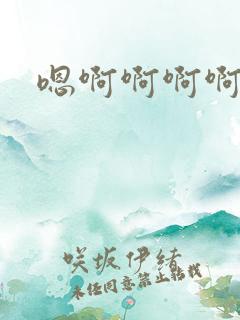 嗯啊啊啊啊
咲坂伊緒
未经同意禁止转载